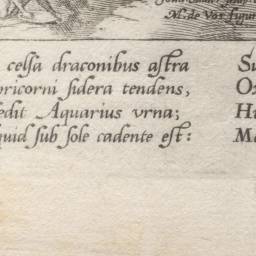 M. de Vos figu
celsa draconibus astra
pricorni sidera tendens,
edit Aquarius vrna;
quid sub sole cadente est:
Su
O
H
M